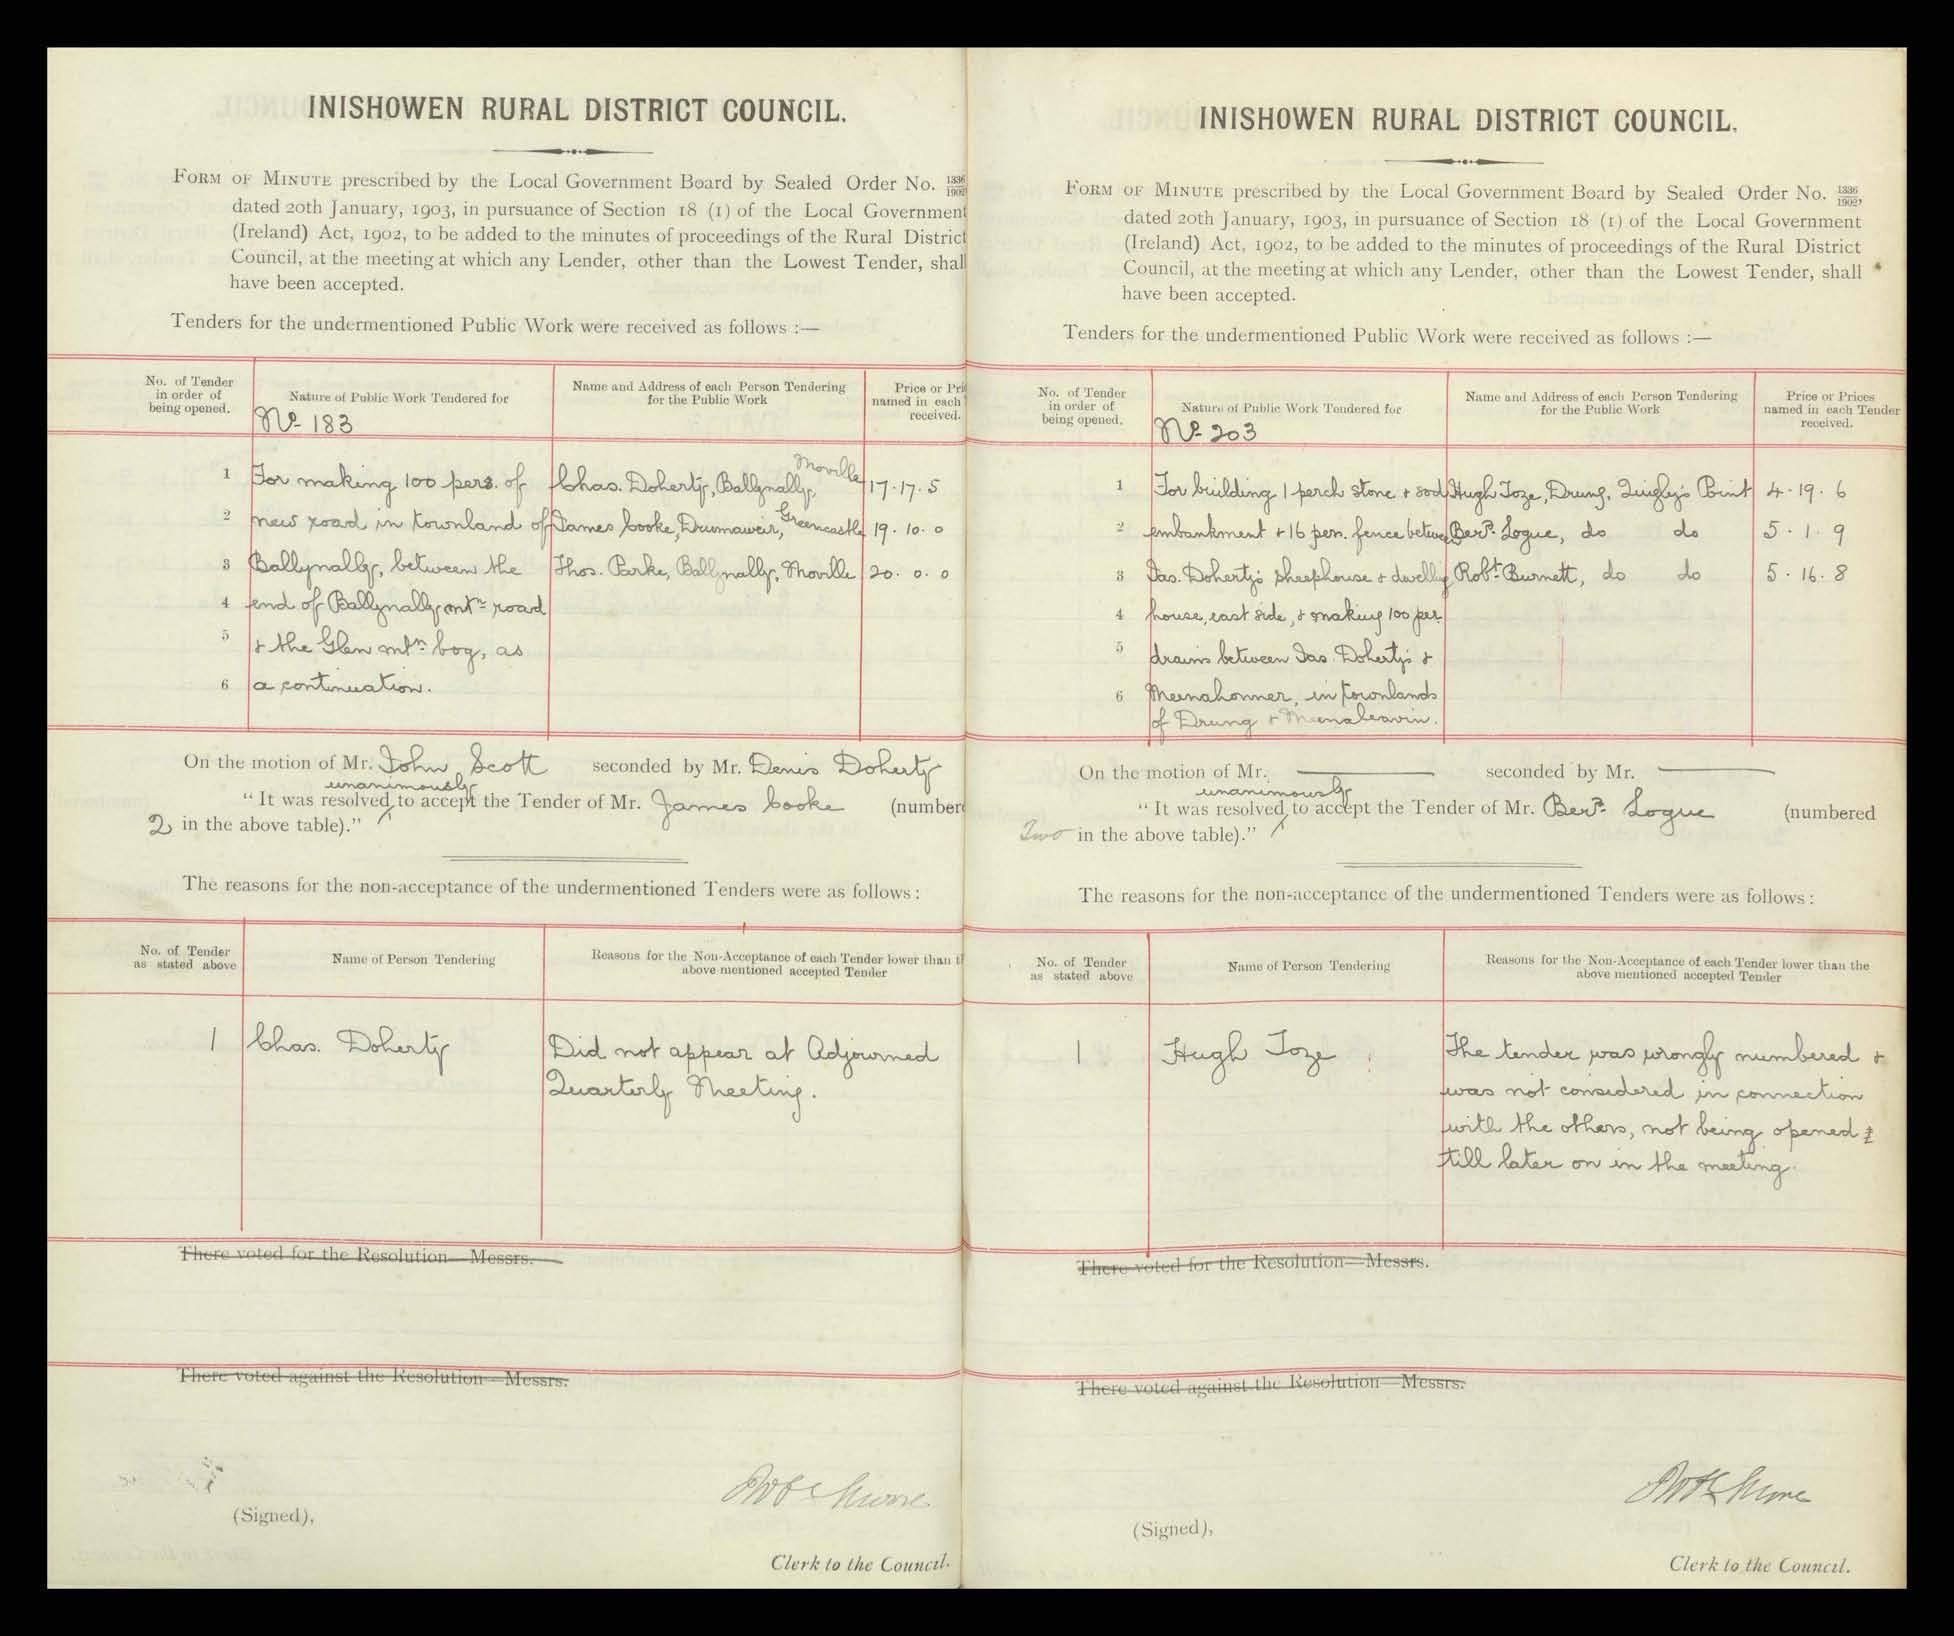 INISHOWEN RURAL DISTRICT COUNCIL.
FORM OF MINUTE prescribed by the Local Government Board by Sealed Order No. 1336/1902
dated 20th January, 1903, in pursuance of Section 18 (1) of the Local Government
(Ireland) Act, 1902, to be added to the minutes of proceedings of the Rural District
Council, at the meeting at which any Lender, other than the Lowest Tender, shall
have been accepted.
Tenders for the undermentioned Public Work were received as follows :—
No. of Tender in order of being opened.
Nature of Public Work Tendered for
No. 183
Name and Address of each Person Tendering for the Public Work
Price or Pri
named in each
received.
1 For making 100 pers. of Chas. Doherty, Ballynally, Moville 17 . 17 . 5
2 new road in townland of James Cooke, Drumaweir, Greencastle 19 . 10 . 0
3 Ballynally, between the Thos. Parke, Ballynally, Moville 20 . 0 . 0
4 end of Ballynally mtn road
5 & the Glen mtn bog, as
6 a continuation.
On the motion of Mr. John Scott seconded by Mr. Denis Doherty
unanimously
“ It was resolved to accept the Tender of Mr. James Cooke (number
2 in the above table).”
The reasons for the non-acceptance of the undermentioned Tenders were as follows :
No. of Tender as stated above
Name of Person Tendering
Reasons for the Non-Acceptance of each Tender lower than th
above mentioned accepted Tender
1 Chas. Doherty Did not appear at Adjourned
Quarterly Meeting.
There voted for the Resolution—Messrs.
There voted against the Resolution—Messrs.
(Signed),
Clerk to the Council.
INISHOWEN RURAL DISTRICT COUNCIL.
FORM OF MINUTE prescribed by the Local Government Board by Sealed Order No. 1336/1902,
dated 20th January, 1903, in pursuance of Section 18 (1) of the Local Government
(Ireland) Act, 1902, to be added to the minutes of proceedings of the Rural District
Council, at the meeting at which any Lender, other than the Lowest Tender, shall
have been accepted.
Tenders for the undermentioned Public Work were received as follows :—
No. of Tender in order of being opened.
Nature of Public Work Tendered for
No. 203
Name and Address of each Person Tendering for the Public Work
Price or Prices named in each Tender received.
1 For building 1 perch stone & sod Hugh Toze, Drung, Quigly's Point 4 . 19 . 6
2 embankment & 16 per. fence between Berd. Logue, do do 5 . 1 . 9
3 Jas. Doherty's sheephouse & dwelling Robt. Burnett, do do 5 . 16 . 8
4 house, east side, & making 100 per.
5 drains between Jas. Doherty's &
6 Meenahonner, in townlands
of Drung & Meenaleavin.
On the motion of Mr. seconded by Mr.
unanimously
“ It was resolved to accept the Tender of Mr. Berd. Logue (numbered
Two in the above table).”
The reasons for the non-acceptance of the undermentioned Tenders were as follows :
No. of Tender as stated above
Name of Person Tendering
Reasons for the Non-Acceptance of each Tender lower than the
above mentioned accepted Tender
1 Hugh Toze The tender was wrongly numbered &
was not considered in connection
with the others, not being opened
till later on in the meeting.
There voted for the Resolution—Messrs.
There voted against the Resolution—Messrs.
(Signed),
Clerk to the Council.